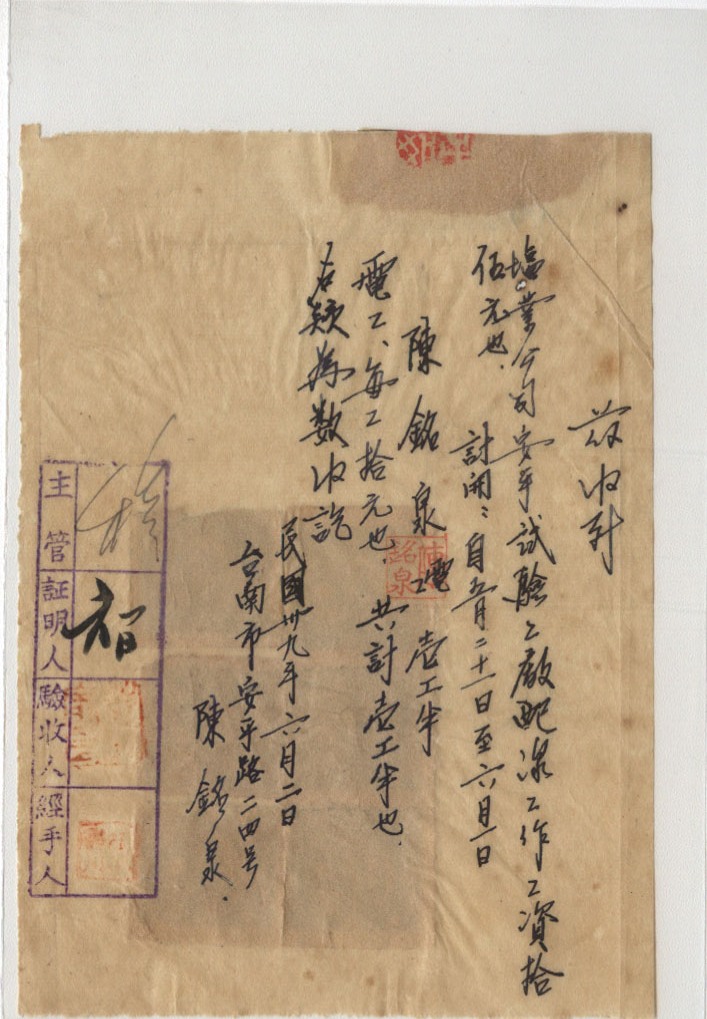 茲收到
塩業公司安平試驗工廠配線工作工資拾
伍元也.
計開：自五月二十一日至六月一日
陳銘泉 電工 壱工半
電工、每工拾元也. 共計壱工半也.
右款為数收訖
民國卅九年六月二日
台南市安平路二四号
陳銘泉.
主管
証明人
驗收人
經手人